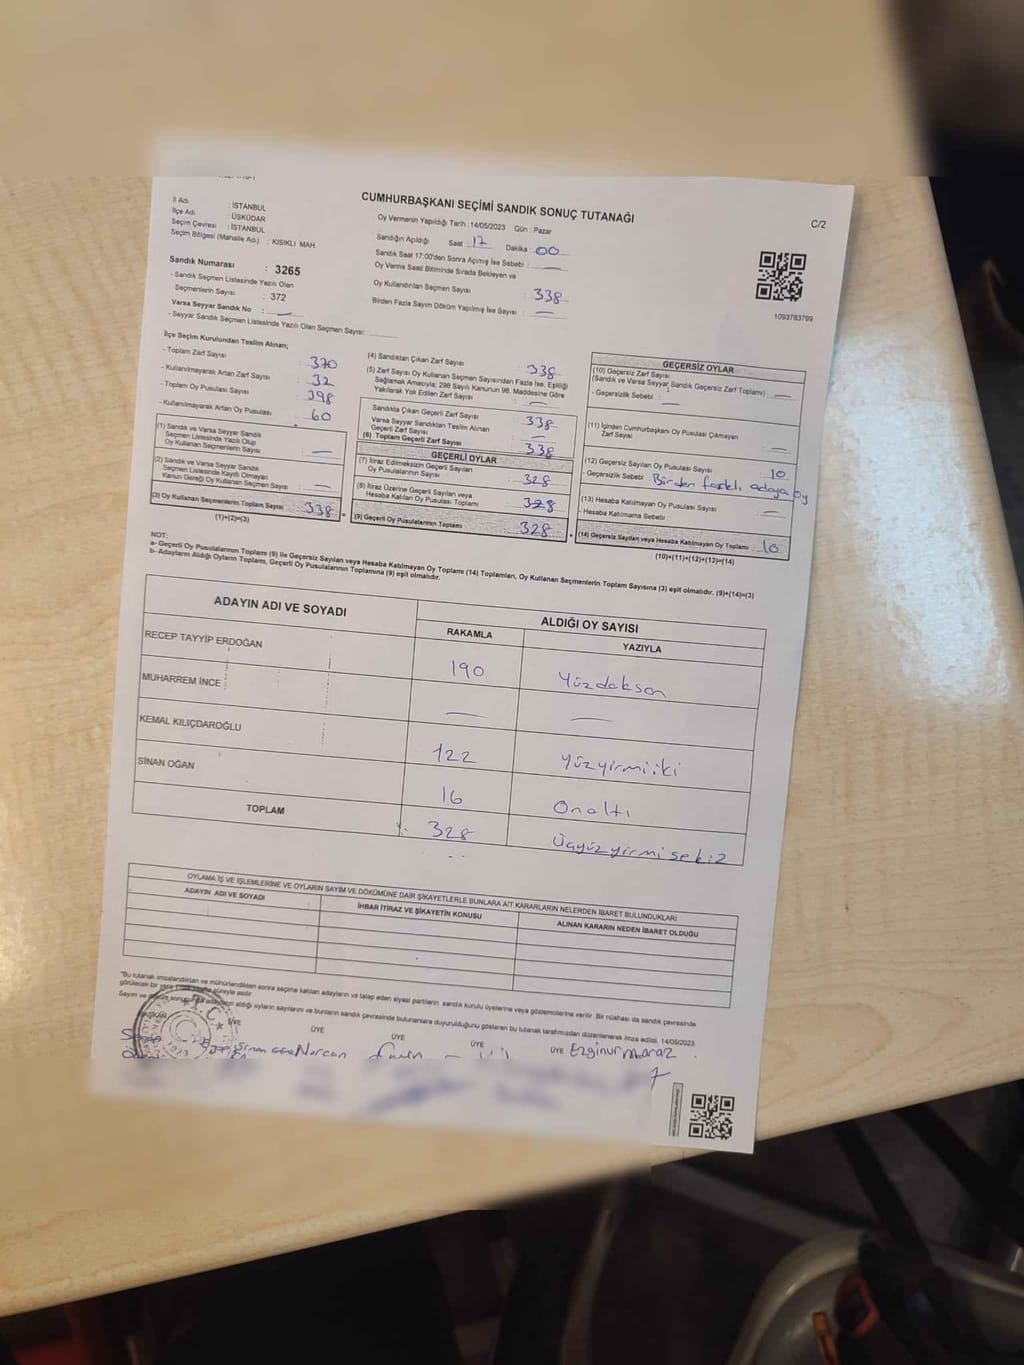 CUMHURBAŞKANI SEÇİMİ SANDIK SONUÇ TUTANAĞI
C/2
İl Adı : İSTANBUL
İlçe Adı : ÜSKÜDAR
Seçim Çevresi : İSTANBUL
Seçim Bölgesi (Mahalle Adı) : KISIKLI MAH.
Sandık Numarası : 3265
- Sandık Seçmen Listesinde Yazılı Olan
Seçmenlerin Sayısı : 372
Varsa Seyyar Sandık No : —
- Seyyar Sandık Seçmen Listesinde Yazılı Olan Seçmen Sayısı:
Oy Vermenin Yapıldığı Tarih :14/05/2023 Gün : Pazar
Sandığın Açıldığı Saat 17 Dakika : 00
Sandık Saat 17:00'den Sonra Açılmış İse Sebebi : —
Oy Verme Saati Bitiminde Sırada Bekleyen ve
Oy Kullandırılan Seçmen Sayısı : 338
Birden Fazla Sayım Döküm Yapılmış İse Sayısı : —
1093783799
İlçe Seçim Kurulundan Teslim Alınan;
- Toplam Zarf Sayısı : 370
- Kullanılmayarak Artan Zarf Sayısı : 32
- Toplam Oy Pusulası Sayısı : 398
- Kullanılmayarak Artan Oy Pusulası : 60
(1) Sandık ve Varsa Seyyar Sandık
Seçmen Listesinde Yazılı Olup
Oy Kullanan Seçmenlerin Sayısı : —
(2) Sandık ve Varsa Seyyar Sandık
Seçmen Listesinde Kayıtlı Olmayan
Kanun Gereği Oy Kullanan Seçmen Sayısı : —
(3) Oy Kullanan Seçmenlerin Toplam Sayısı : 338
(1)+(2)=(3)
(4) Sandıktan Çıkan Zarf Sayısı : 338
(5) Zarf Sayısı Oy Kullanan Seçmen Sayısından Fazla İse, Eşitliği
Sağlamak Amacıyla; 298 Sayılı Kanunun 98. Maddesine Göre
Yakılarak Yok Edilen Zarf Sayısı : —
Sandıkta Çıkan Geçerli Zarf Sayısı : 338
Varsa Seyyar Sandıktan Teslim Alınan
Geçerli Zarf Sayısı : —
(6) Toplam Geçerli Zarf Sayısı : 338
GEÇERLİ OYLAR
(7) İtiraz Edilmeksizin Geçerli Sayılan
Oy Pusulalarının Sayısı : 328
(8) İtiraz Üzerine Geçerli Sayılan veya
Hesaba Katılan Oy Pusulası Toplamı : 328
(9) Geçerli Oy Pusulalarının Toplamı : 328
GEÇERSİZ OYLAR
(10) Geçersiz Zarf Sayısı
(Sandık ve Varsa Seyyar Sandık Geçersiz Zarf Toplamı) : —
- Geçersizlik Sebebi : —
(11) İçinden Cumhurbaşkanı Oy Pusulası Çıkmayan
Zarf Sayısı : —
(12) Geçersiz Sayılan Oy Pusulası Sayısı : 10
- Geçersizlik Sebebi : Birden fazla adaya oy
(13) Hesaba Katılmayan Oy Pusulası Sayısı : —
- Hesaba Katılmama Sebebi :
(14) Geçersiz Sayılan veya Hesaba Katılmayan Oy Toplamı : 10
(10)+(11)+(12)+(13)=(14)
NOT:
a- Geçerli Oy Pusulalarının Toplamı (9) ile Geçersiz Sayılan veya Hesaba Katılmayan Oy Toplamı (14) Toplamları, Oy Kullanan Seçmenlerin Toplam Sayısına (3) eşit olmalıdır. (9)+(14)=(3)
b- Adayların Aldığı Oyların Toplamı, Geçerli Oy Pusulalarının Toplamına (9) eşit olmalıdır.
ADAYIN ADI VE SOYADI ALDIĞI OY SAYISI
RAKAMLA YAZIYLA
RECEP TAYYİP ERDOĞAN 190 Yüzdoksan
MUHARREM İNCE — —
KEMAL KILIÇDAROĞLU 122 Yüzyirmiiki
SİNAN OĞAN 16 Onaltı
TOPLAM 328 Üçyüzyirmisekiz
OYLAMA İŞ VE İŞLEMLERİNE VE OYLARIN SAYIM VE DÖKÜMÜNE DAİR ŞİKAYETLERLE BUNLARA AİT KARARLARIN NELERDEN İBARET BULUNDUKLARI
ADAYIN ADI VE SOYADI İHBAR İTİRAZ VE ŞİKAYETİN KONUSU ALINAN KARARIN NEDEN İBARET OLDUĞU
"Bu tutanak imzalandıktan ve mühürlendikten sonra seçime katılan adayların ve talep eden siyasi partilerin sandık kurulu üyelerine veya gözlemcilerine verilir. Bir nüshası da sandık çevresinde
görülecek bir yere süreyle asılır.
Sayım ve döküm adayların aldığı oyların sayılarını ve bunların sandık çevresinde bulunanlara duyurulduğunu gösteren bu tutanak tarafımızdan düzenlenerek imza edildi. 14/05/2023
BAŞKAN ÜYE ÜYE ÜYE ÜYE ÜYE
Sinan Norcan Ezginur Maraz
T.C.
1923